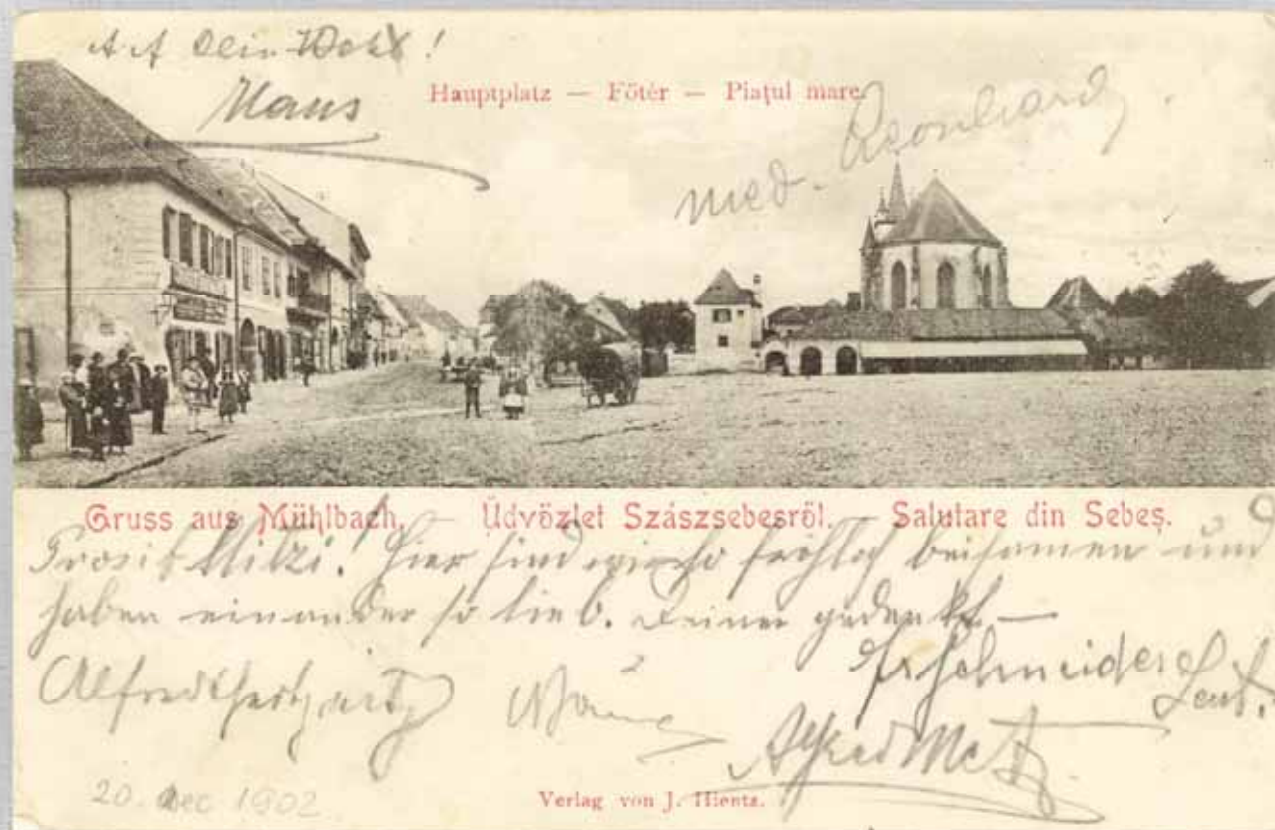 Auf Dein Wohl!
Hans
Hauptplatz — Főtér — Piațul mare
med. Leonhard
Gruss aus Mühlbach. — Üdvözlet Szászsebesről. — Salutare din Sebeș.
Prosit Mitzi! Hier sind wir so fröhlich beisamen und
haben einander so lieb. Deiner gedenkt —
Schneider
Leut.
Alfred
Alfred Metz
20. Dec 1902
Verlag von J. Hientz.